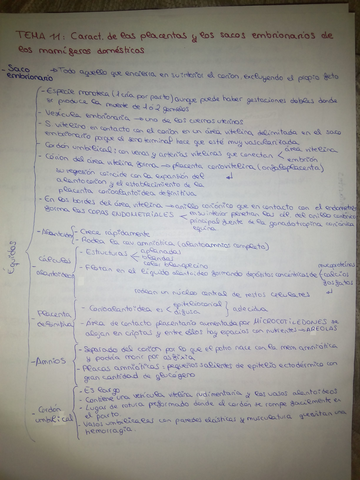 TEMA 11: Caract. de las placentas y los sacos embrionarios de
los mamíferos domésticos
- Saco embrionario → Todo aquello que encierra en su interior el corion, excluyendo el propio feto
Équidos
- Especie monotoca (1 cría por parto) aunque puede haber gestaciones dobles donde
se produce la muerte de 1 o 2 gemelos
- Vesícula embrionaria → uno de los cuernos uterinos
- S. vitelino en contacto con el corion en un área vitelina delimitada en el saco
embrionario porque el seno terminal hace que esté muy vascularizada
- Cordón umbilical: con venas y arterias vitelinas que conectan área vitelina
embrión
- Corion del área vitelina forma → placenta coriovitelina (onfaloplacenta)
su regresión coincide con la expansión del
alantocorion y el establecimiento de la
placenta corioalantoidea definitiva
- En los bordes del área vitelina → anillo coriónico que en contacto con el endometrio
forma las COPAS ENDOMETRIALES
principal fuente de la gonadotropina coriónica
equina
- Alantoides
- Crece rápidamente
- Rodea la cav. amniótica (alantoamnios completo)
- Cálculos alantoideos
- Estructuras
aplanadas
color blanquecino
- Flotan en el líquido alantoideo formando depósitos concéntricos de
mucoproteínas
calcio
fosfatos
sobre un núcleo central de restos celulares
- Placenta definitiva
- Corioalantoidea es
epiteliocorial
difusa
adecidua
- Área de contacto placentario aumentada por MICROCOTILEDONES se
alojan en criptas y entre ellos hay espacios con nutrientes → AREOLAS
- Amnios
- Separado del corion por lo que el potro nace con la memb. amniótica
y podría morir por asfixia
- Placas amnióticas: pequeños salientes de epitelio ectodérmico con
gran cantidad de glucógeno
- Cordón umbilical
- Es largo
- Contiene una vesícula vitelina rudimentaria y los vasos alantoideos
- Lugar de rotura preformado donde el cordón se rompe fácilmente en
el parto
- Vasos umbilicales con paredes elásticas y musculatura que evitan una
hemorragia